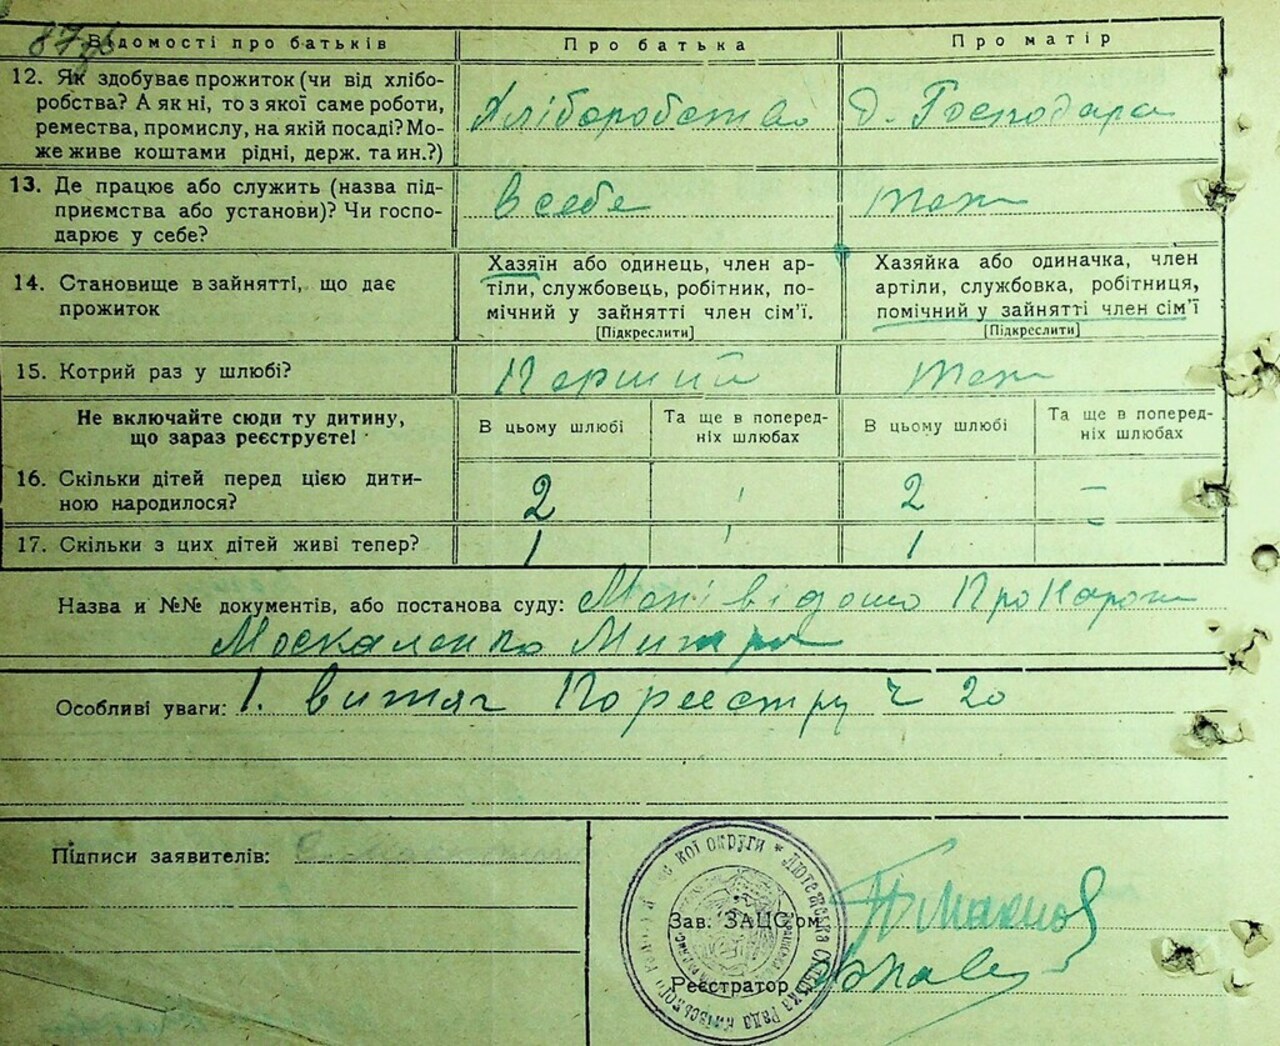 Відомості про батьків
Про батька
Про матір
12. Як здобуває прожиток (чи від хлібо-
робства? А як ні, то з якої саме роботи,
ремества, промислу, на якій посаді? Мо-
же живе коштами рідні, держ. та ин.?)
Хліборобство
Д. Господара
13. Де працює або служить (назва під-
приємства або установи)? Чи госпо-
дарює у себе?
В себе
тож
14. Становище в зайнятті, що дає
прожиток
Хазяїн або одинець, член ар-
тіли, службовець, робітник, по-
мічний у зайнятті член сім'ї.
[Підкреслити]
Хазяйка або одиначка, член
артіли, службовка, робітниця,
помічний у зайнятті член сім'ї
[Підкреслити]
15. Котрий раз у шлюбі?
Перший
тож
Не включайте сюди ту дитину,
що зараз реєструєте!
В цьому шлюбі
Та ще в поперед-
ніх шлюбах
В цьому шлюбі
Та ще в поперед-
ніх шлюбах
16. Скільки дітей перед цією дити-
ною народилося?
2
2
–
17. Скільки з цих дітей живі тепер?
1
1
–
Назва и №№ документів, або постанова суду:
Москаленко
Особливі уваги: 1. витяг По реестру ч 20
Підписи заявителів:
Зав. ЗАЦС'ом
Реєстратор
Лютежська Сільська Рада Київського
кої округи *